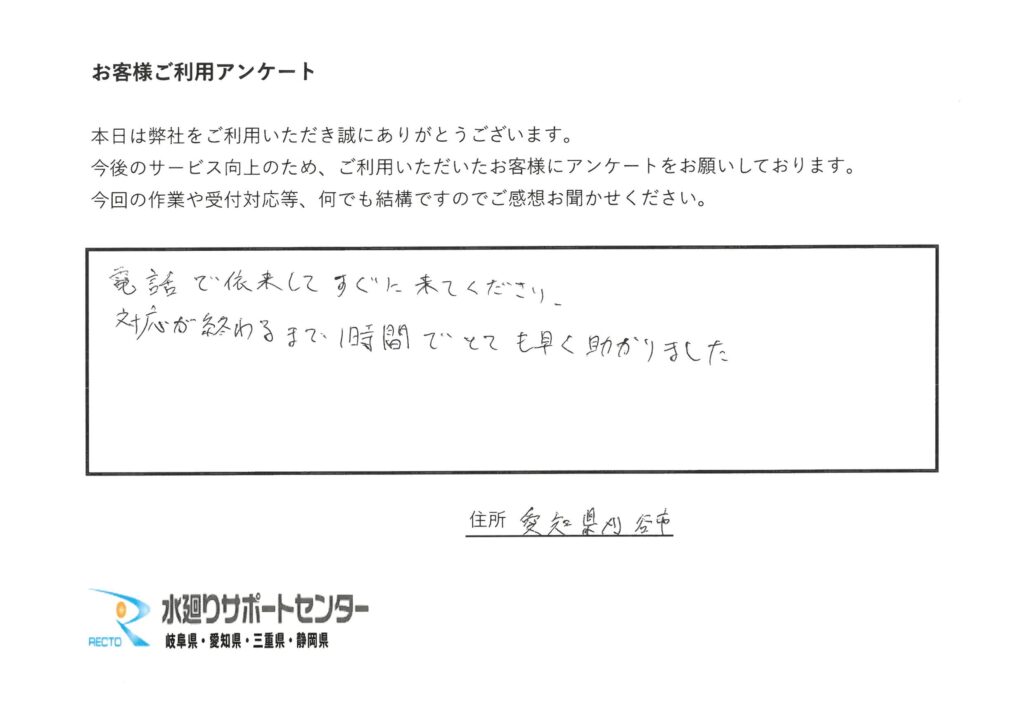 お客様ご利用アンケート
本日は弊社をご利用いただき誠にありがとうございます。
今後のサービス向上のため、ご利用いただいたお客様にアンケートをお願いしております。
今回の作業や受付対応等、何でも結構ですのでご感想お聞かせください。
電話で依来してすぐに来てくださり、
対応が終わるまで1時間でとても早く助かりました
住所 愛知県刈谷市
RECTO 水廻りサポートセンター
岐阜県・愛知県・三重県・静岡県